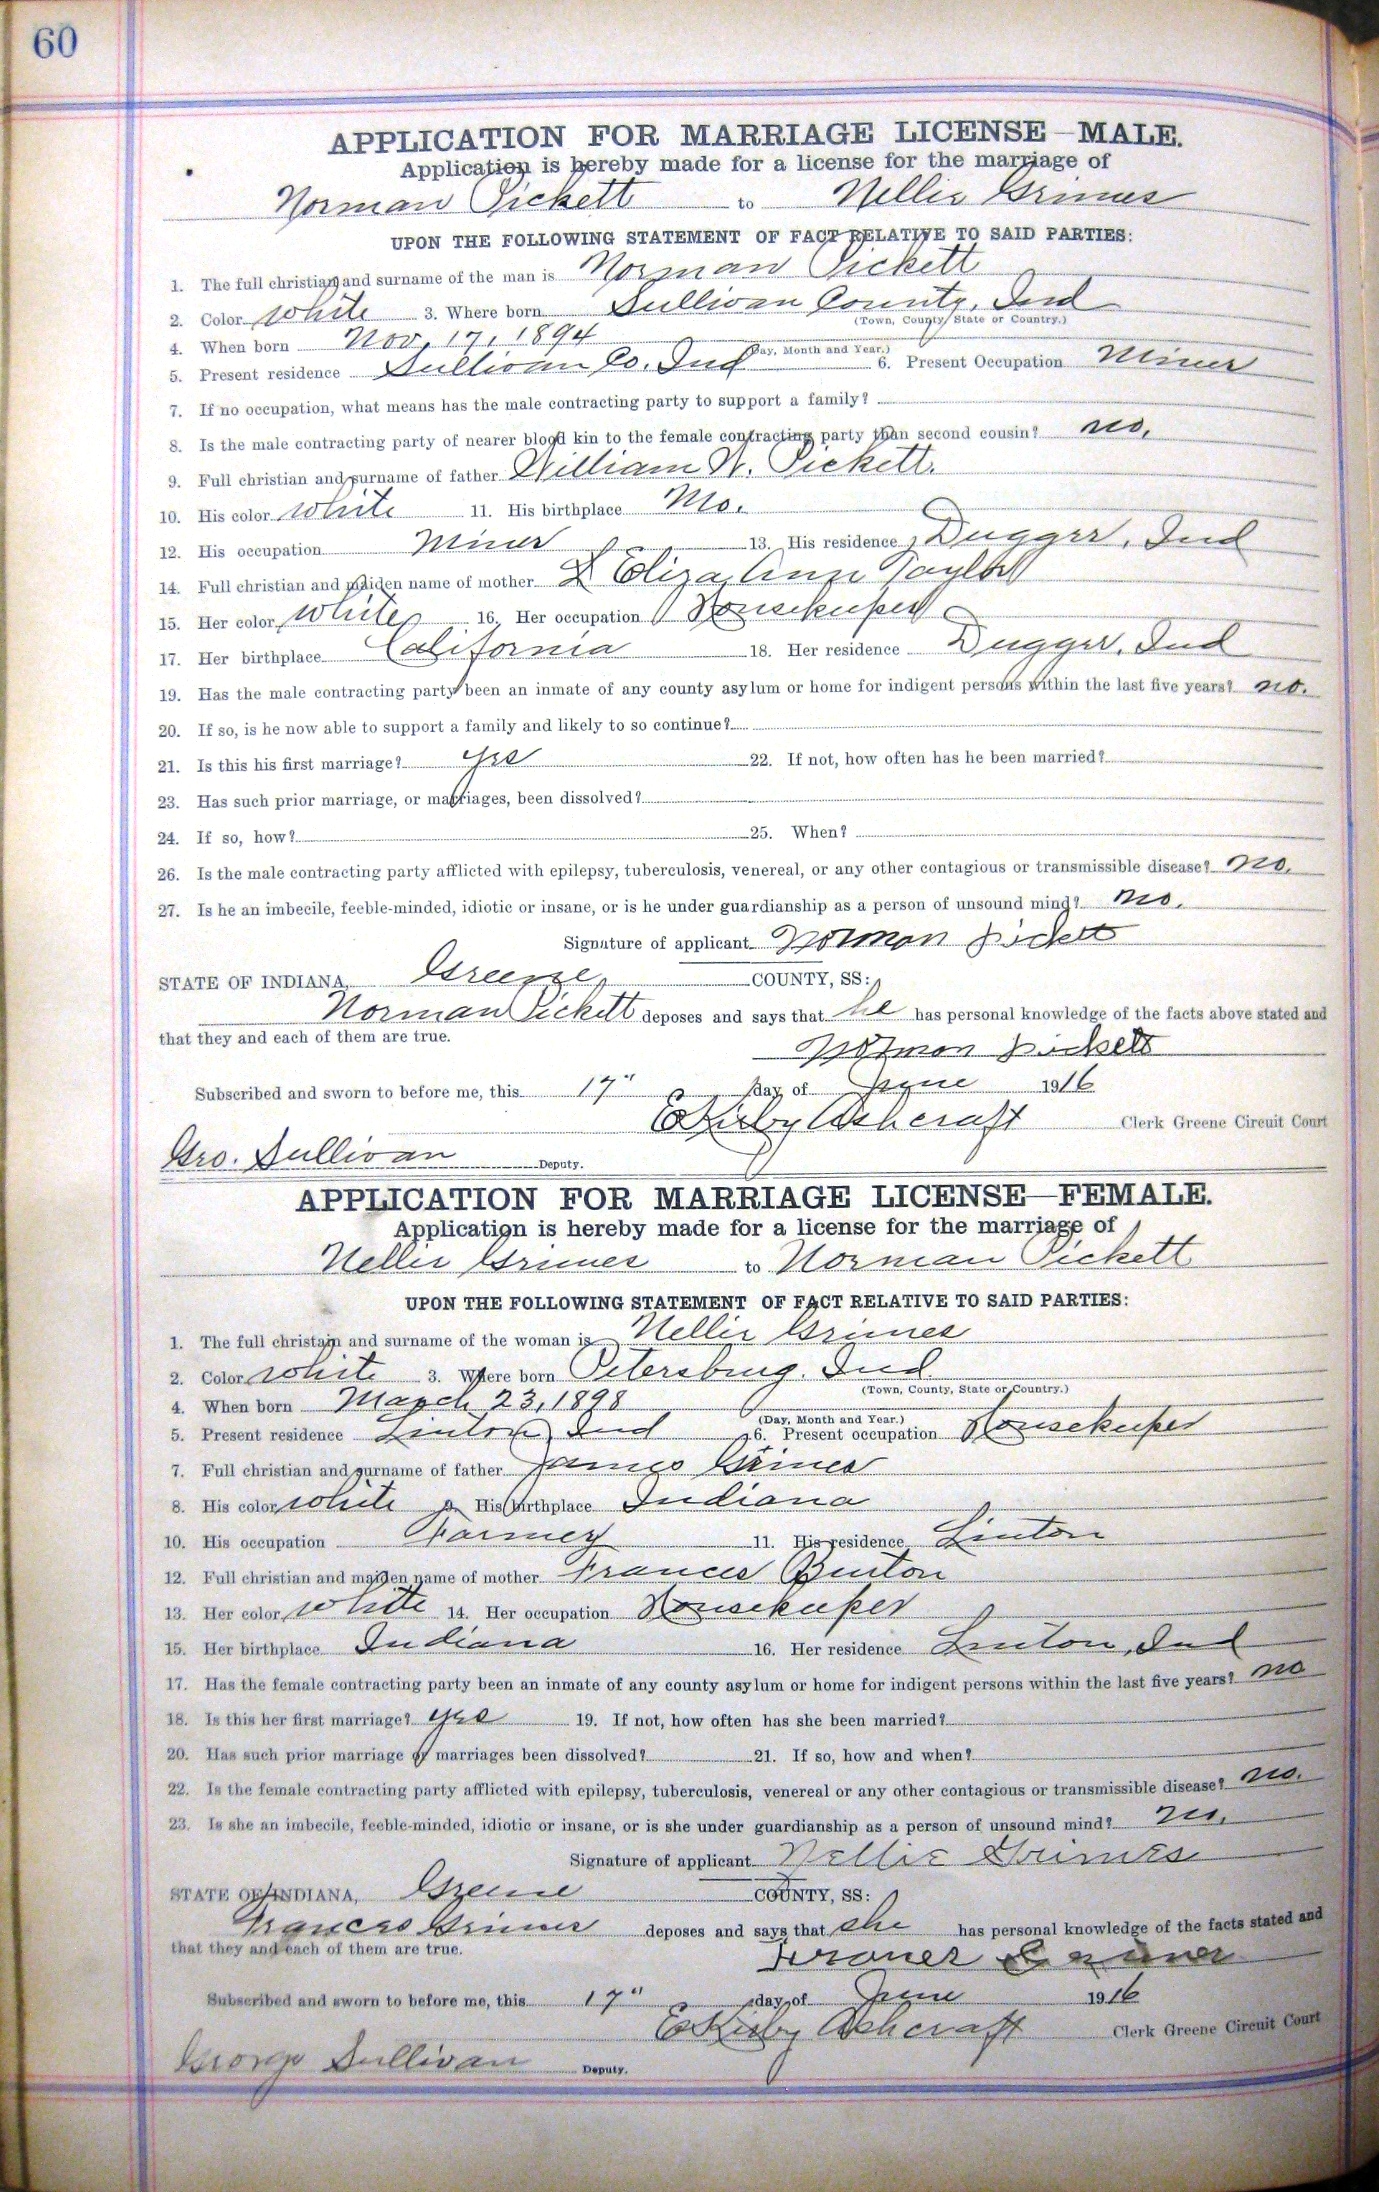 60
APPLICATION FOR MARRIAGE LICENSE—MALE.
Application is hereby made for a license for the marriage of
Norman Pickett to Nellie Grimes
UPON THE FOLLOWING STATEMENT OF FACT RELATIVE TO SAID PARTIES:
1. The full christian and surname of the man is Norman Pickett
2. Color white 3. Where born Sullivan County, Ind
(Town, County, State or Country.)
4. When born Nov. 17, 1894
(Day, Month and Year.)
5. Present residence Sullivan Co. Ind 6. Present Occupation Miner
7. If no occupation, what means has the male contracting party to support a family?
8. Is the male contracting party of nearer blood kin to the female contracting party than second cousin? no.
9. Full christian and surname of father William W. Pickett.
10. His color white 11. His birthplace Mo.
12. His occupation Miner 13. His residence Dugger, Ind
14. Full christian and maiden name of mother Eliza Ann Taylor
15. Her color white 16. Her occupation Housekeeper
17. Her birthplace California 18. Her residence Dugger, Ind
19. Has the male contracting party been an inmate of any county asylum or home for indigent persons within the last five years? no.
20. If so, is he now able to support a family and likely to so continue?
21. Is this his first marriage? yes 22. If not, how often has he been married?
23. Has such prior marriage, or marriages, been dissolved?
24. If so, how? 25. When?
26. Is the male contracting party afflicted with epilepsy, tuberculosis, venereal, or any other contagious or transmissible disease? no.
27. Is he an imbecile, feeble-minded, idiotic or insane, or is he under guardianship as a person of unsound mind? no.
Signature of applicant Norman Pickett
STATE OF INDIANA, Greene COUNTY, SS:
Norman Pickett deposes and says that he has personal knowledge of the facts above stated and
that they and each of them are true.
Norman Pickett
Subscribed and sworn to before me, this 17" day of June 1916
E Kirby Ashcraft Clerk Greene Circuit Court
Geo. Sullivan Deputy.
APPLICATION FOR MARRIAGE LICENSE—FEMALE.
Application is hereby made for a license for the marriage of
Nellie Grimes to Norman Pickett
UPON THE FOLLOWING STATEMENT OF FACT RELATIVE TO SAID PARTIES:
1. The full christain and surname of the woman is Nellie Grimes
2. Color white 3. Where born Petersburg, Ind
(Town, County, State or Country.)
4. When born March 23, 1898
(Day, Month and Year.)
5. Present residence Linton, Ind 6. Present occupation Housekeeper
7. Full christian and surname of father James Grimes
8. His color white 9. His birthplace Indiana
10. His occupation Farmer 11. His residence Linton
12. Full christian and maiden name of mother Frances Benton
13. Her color white 14. Her occupation Housekeeper
15. Her birthplace Indiana 16. Her residence Linton, Ind
17. Has the female contracting party been an inmate of any county asylum or home for indigent persons within the last five years? no
18. Is this her first marriage? yes 19. If not, how often has she been married?
20. Has such prior marriage or marriages been dissolved? 21. If so, how and when?
22. Is the female contracting party afflicted with epilepsy, tuberculosis, venereal or any other contagious or transmissible disease? no.
23. Is she an imbecile, feeble-minded, idiotic or insane, or is she under guardianship as a person of unsound mind? no.
Signature of applicant Nellie Grimes
STATE OF INDIANA, Greene COUNTY, SS:
Frances Grimes deposes and says that she has personal knowledge of the facts stated and
that they and each of them are true.
Subscribed and sworn to before me, this 17" day of June 1916
E Kirby Ashcraft Clerk Greene Circuit Court
George Sullivan Deputy.